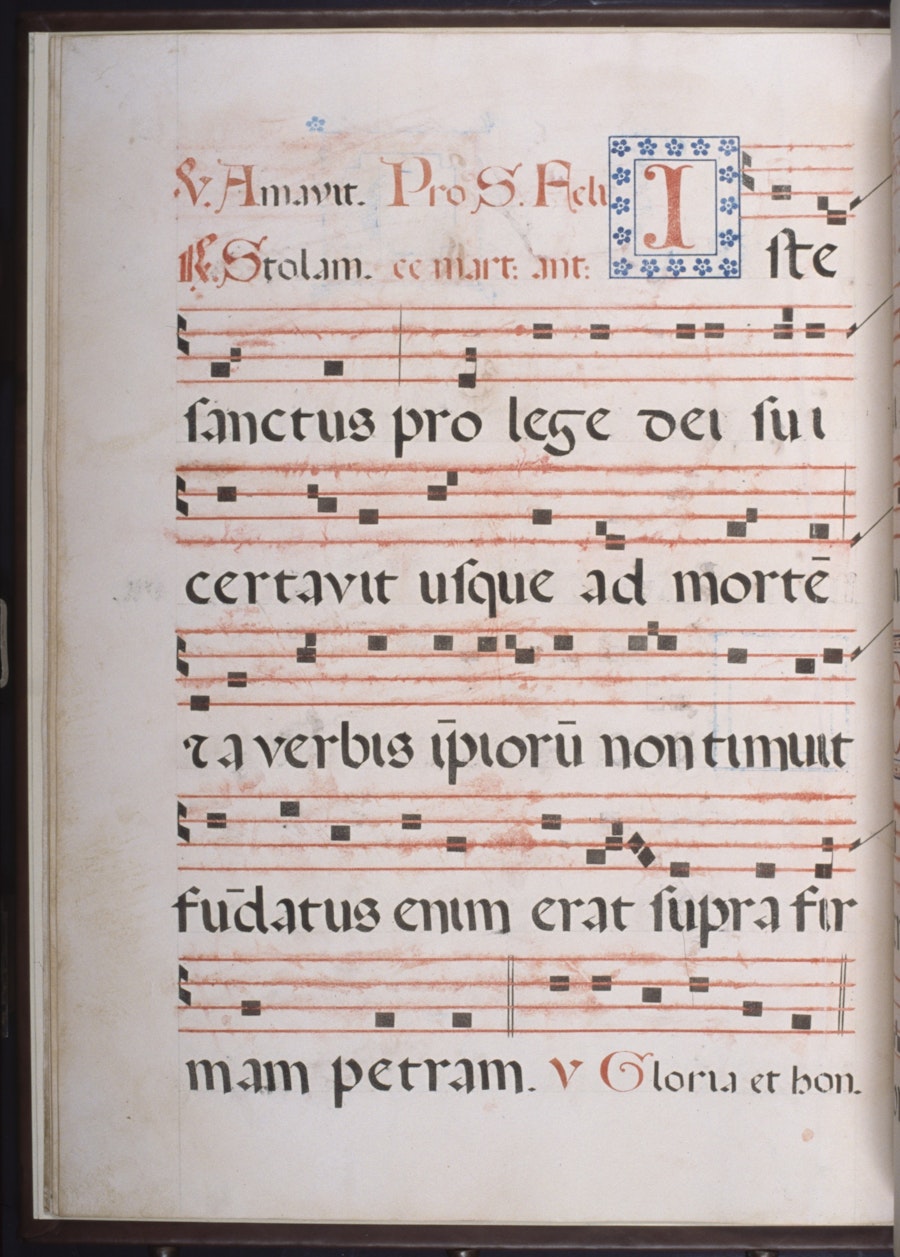 ℣. Amavit. Pro S. Feli
℟. Stolam. ce mart: ant:
Iſte
ſanctus pro lege dei ſui
certavit uſque ad mortē
⁊ a verbis īpiorū non timuit
fūdatus enim erat ſupra fir
mam petram. V Gloria et hon.